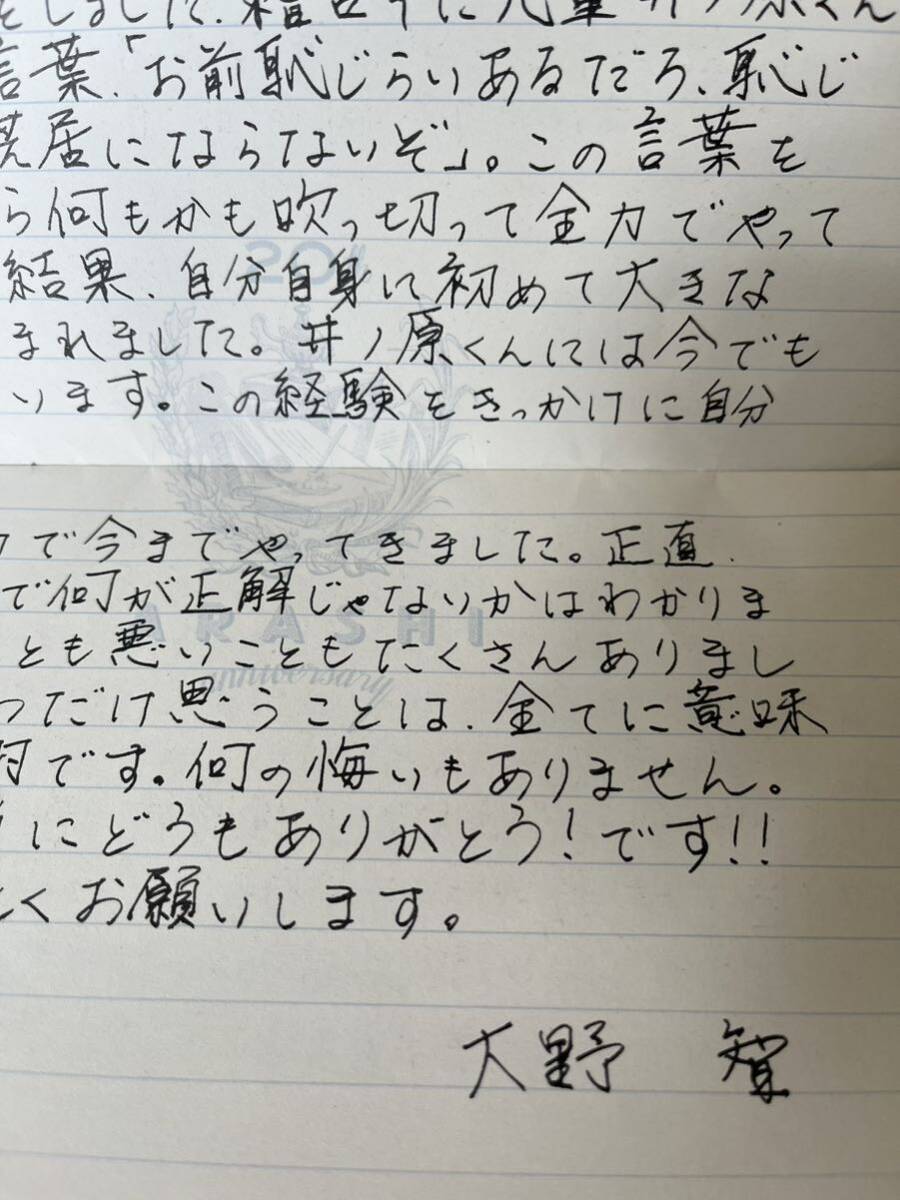 をしました。稽古中に先輩井ノ原くん
言葉、「お前恥じらいあるだろ、恥じ
芝居にならないぞ」。この言葉を
ら何もかも吹っ切って全力でやって
結果、自分自身に初めて大きな
まれました。井ノ原くんには今でも
います。この経験をきっかけに自分
20th
で今までやってきました。正直、
で何が正解じゃないかはわかりま
とも悪いこともたくさんありまし
つだけ思うことは、全てに意味
です。何の悔いもありません。
にどうもありがとう!です!!
しくお願いします。
ARASHI
anniversary
大野 智